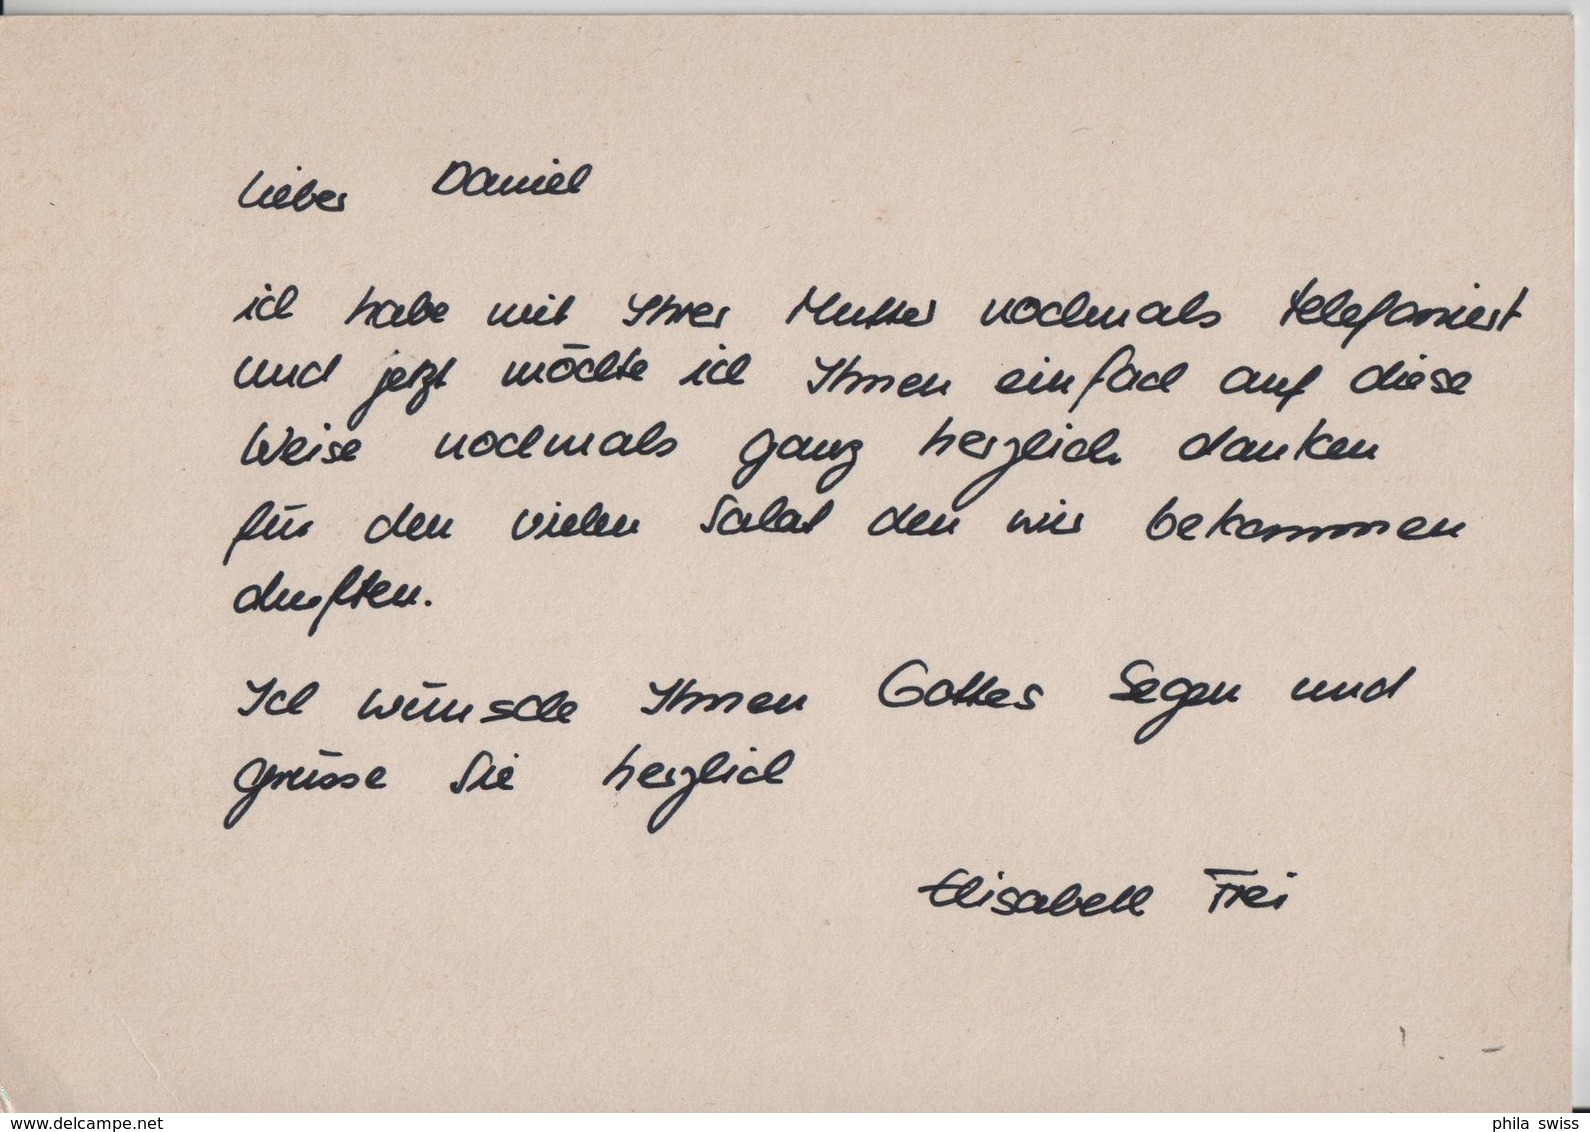 Lieber Daniel
ich habe mit Ihrer Mutter nochmals telefoniert
und jetzt möchte ich Ihnen einfach auf diese
Weise nochmals ganz herzlich danken
für den vielen Salat den wir bekommen
durften.
Ich wünsche Ihnen Gottes Segen und
grüsse Sie herzlich
Elisabeth Frei
www.delcampe.net
phila swiss